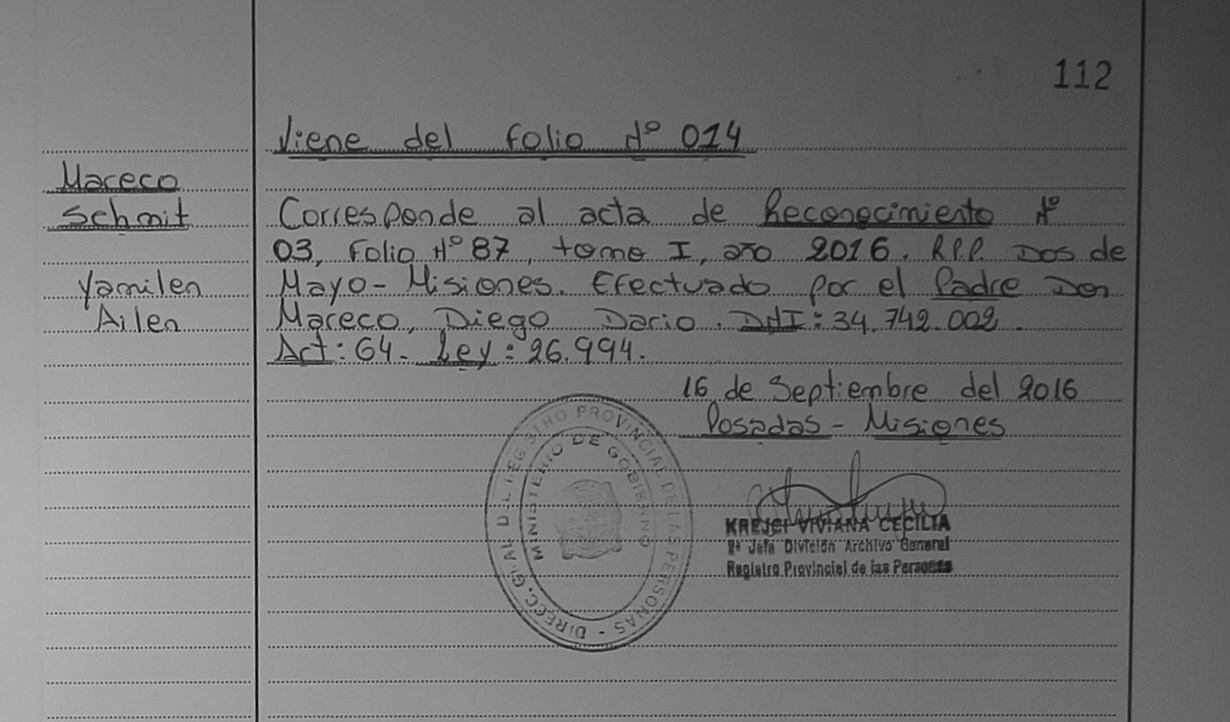 112
Viene del Folio Nº 014
Mareco
Schmit
Yamilen
Ailen
Corresponde al acta de Reconocimiento Nº
03, Folio Nº 87, tomo I, año 2016. R.P.P. Dos de
Mayo - Misiones. Efectuado por el Padre Don
Mareco, Diego Dario. DNI: 34.742.002.
Art: 64. Ley: 26.994.
16 de Septiembre del 2016
Posadas - Misiones
DIRECC. GRAL DEL REGISTRO PROVINCIAL DE LAS PERSONAS -
MINISTERIO DE GOBIERNO
KREJCI VIVIANA CECILIA
2ª Jefa División Archivo General
Registro Provincial de las Personas